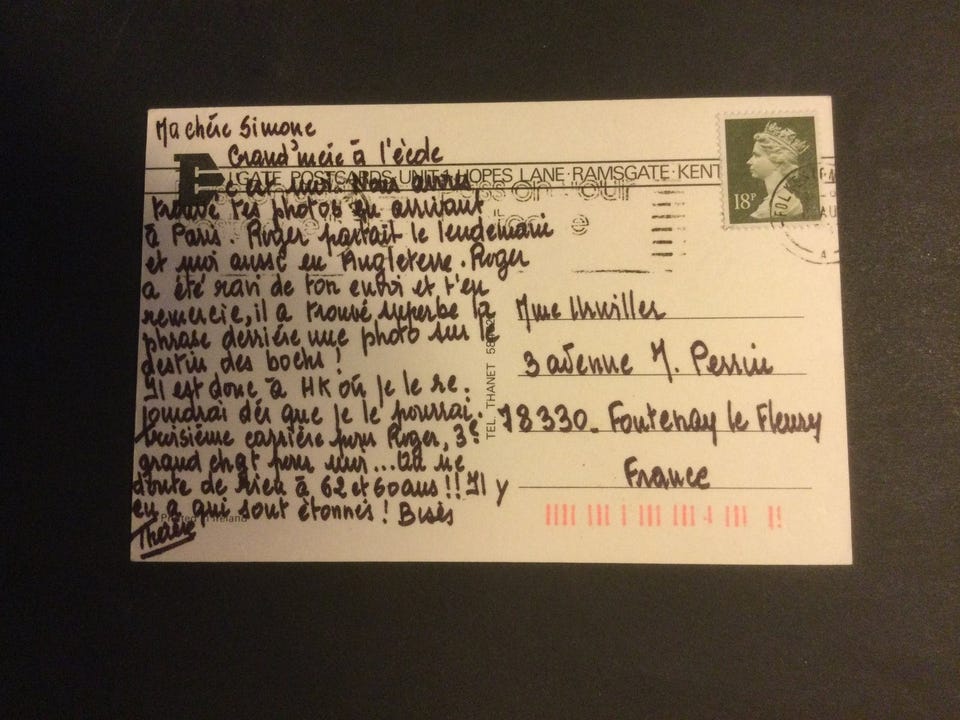 Ma chère Simone
Grand'mère à l'école
GATE POSTCARDS UNIT HOPES LANE·RAMSGATE·KENT
c'est moi. Nous avons
trouvé tes photos en arrivant
à Paris. Roger partait le lendemain
et moi aussi en Angleterre. Roger
a été ravi de ton envoi et t'en
remercie, il a trouvé superbe la
phrase derrière une photo sur le
destin des bochs !
Il est donc à HK où je le re-
joindrai dès que je le pourrai.
Troisième carrière pour Roger, 3e
grand chgt pour moi... On ne
doute de rien à 62 et 60 ans !! Il y
en a qui sont étonnés ! Bises
Thérèse
Printed in Ireland
TEL. THANET
18P
FOLK
AU
Mme Urviller
3 avenue M. Perrin
78330_ Fontenay le Fleury
France